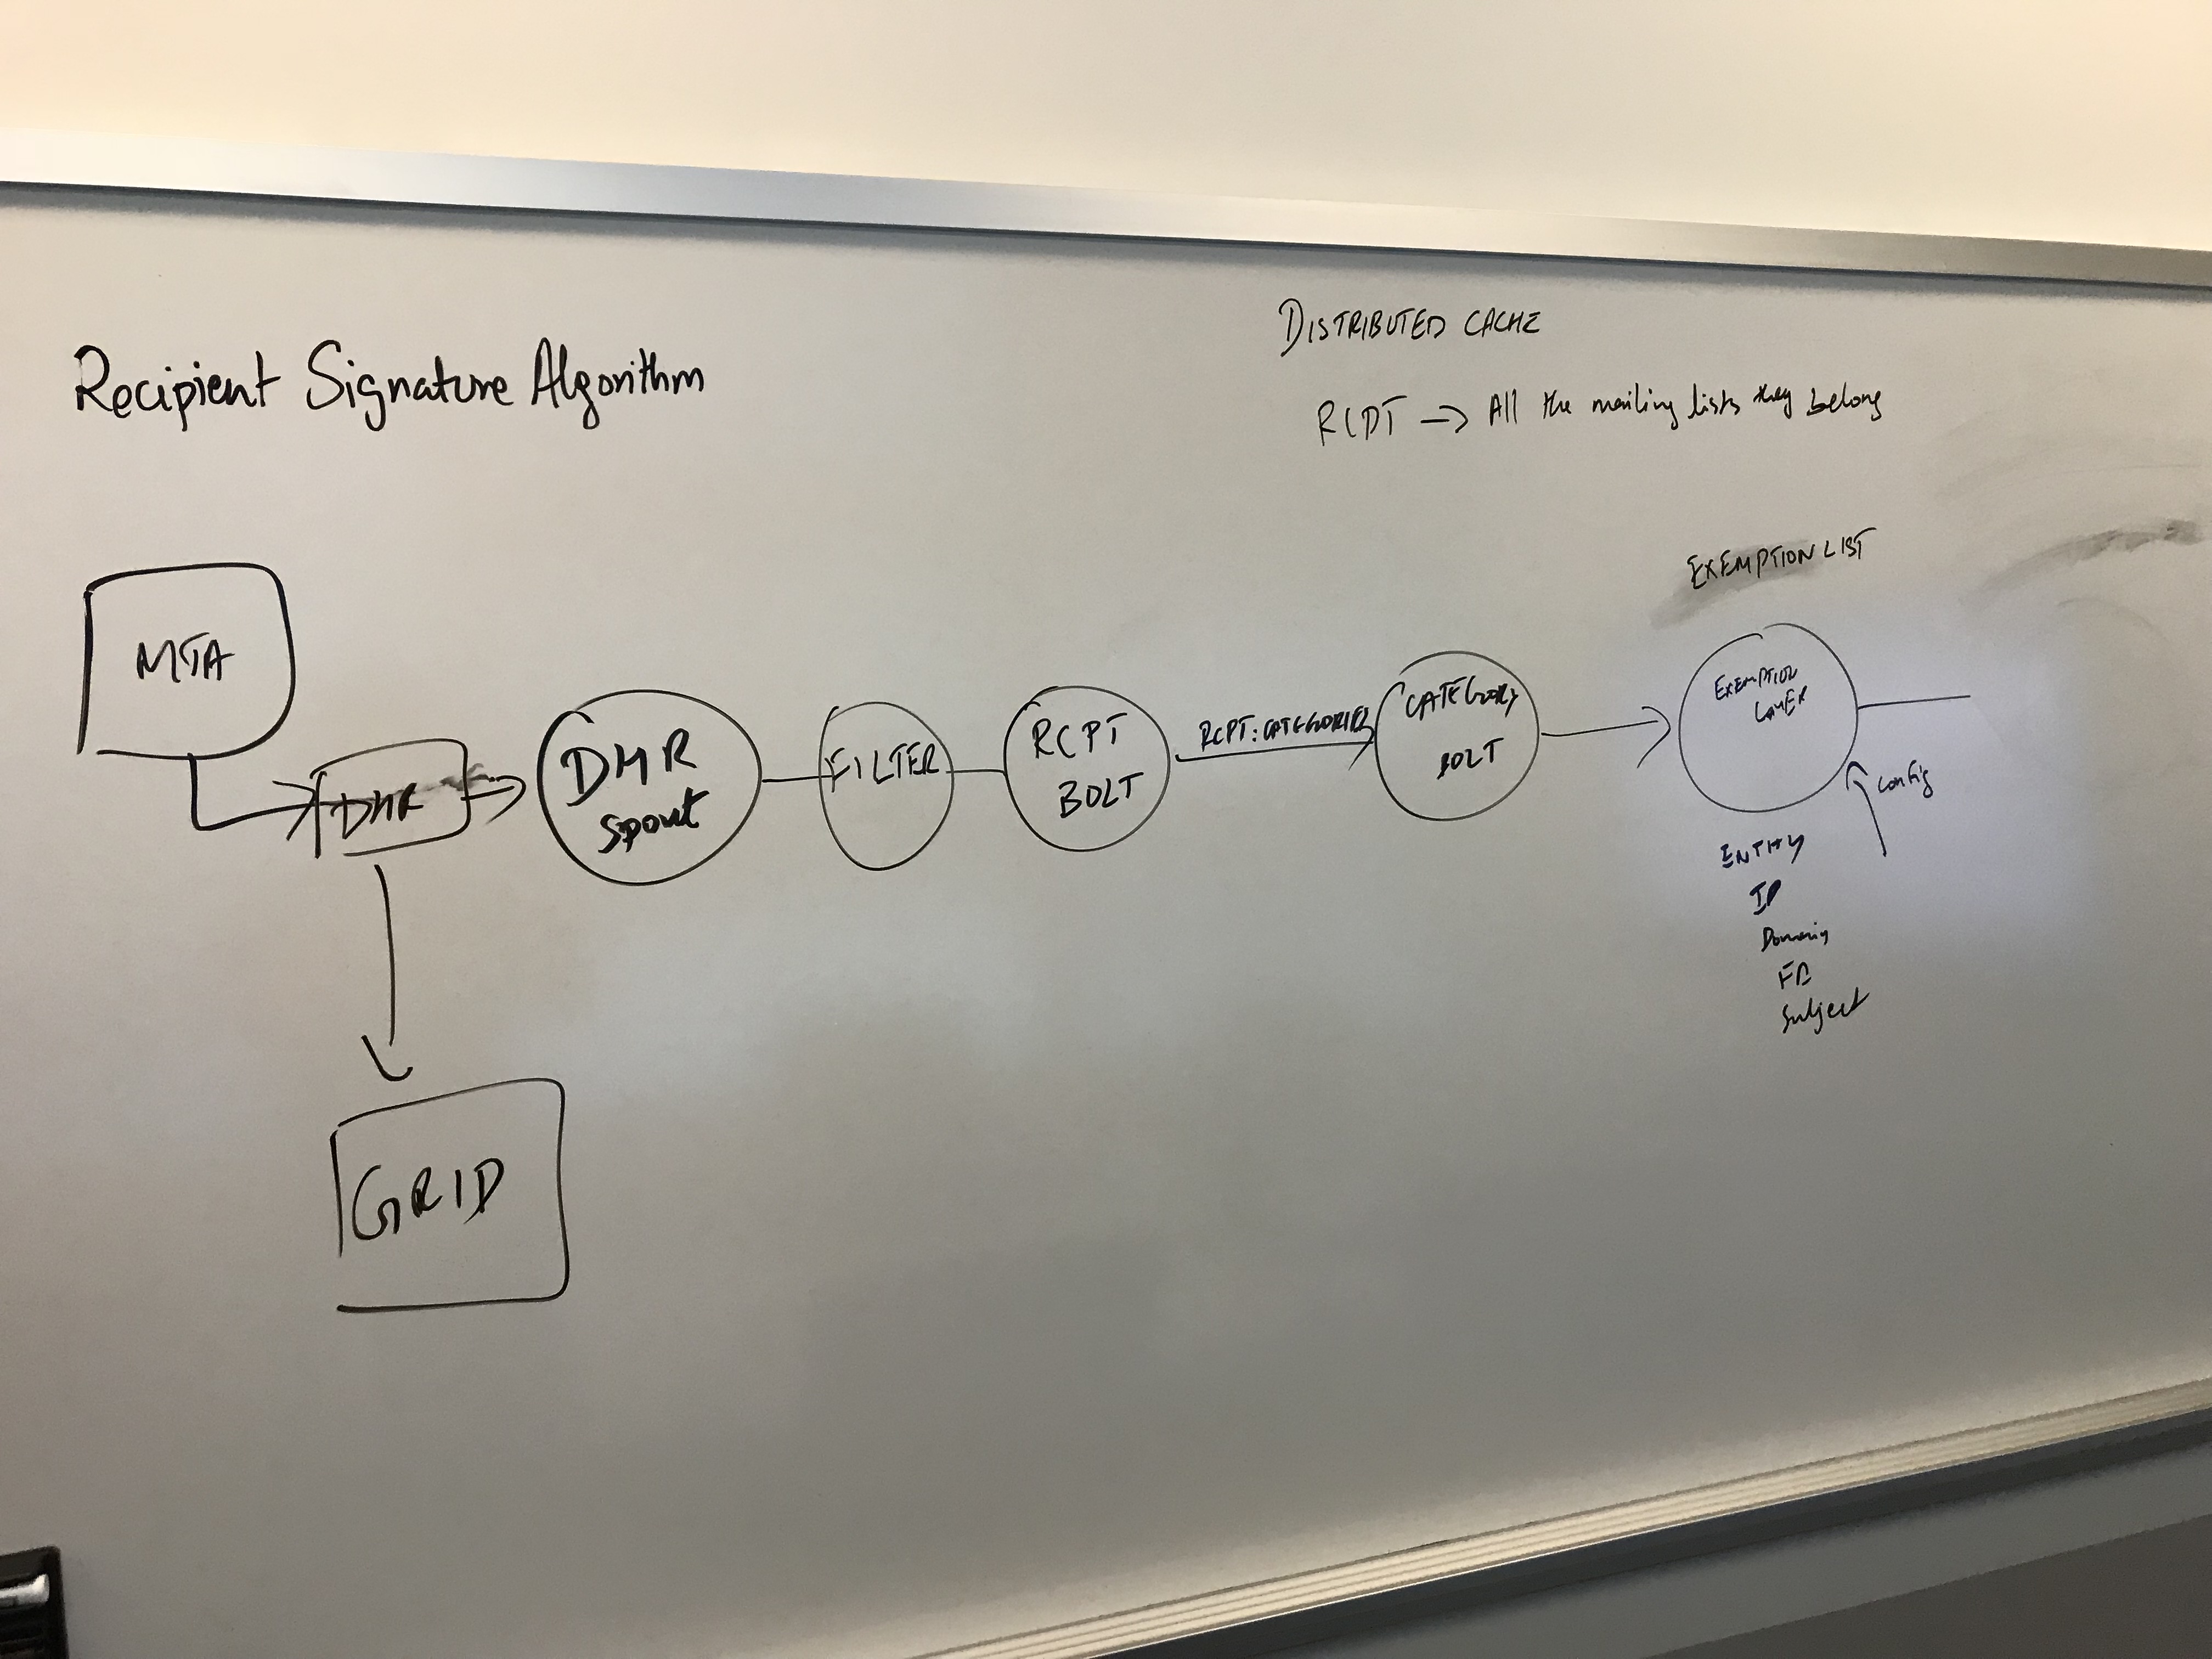 Recipient Signature Algorithm
DISTRIBUTED CACHE
RCPT → All the mailing lists they belong
EXEMPTION LIST
MTA
DHR
DHR
Spout
FILTER
RCPT
BOLT
RCPT:CATEGORIES
CATEGORY
BOLT
EXEMPTION
LAYER
Config
ENTITY
IP
Domain
Subject
GRID